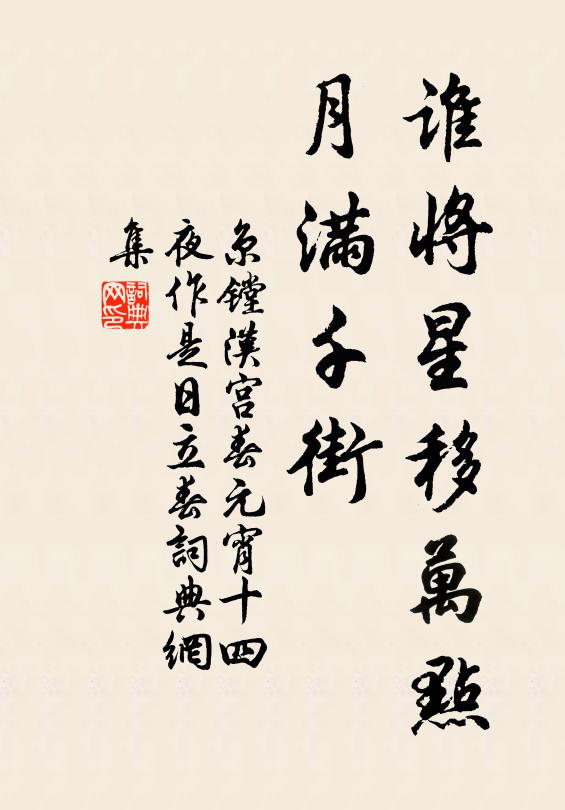 誰將星移萬點
月滿千街
京鏜漢宮春元宵十四
夜作是日立春詞典網
集
詞典
网印